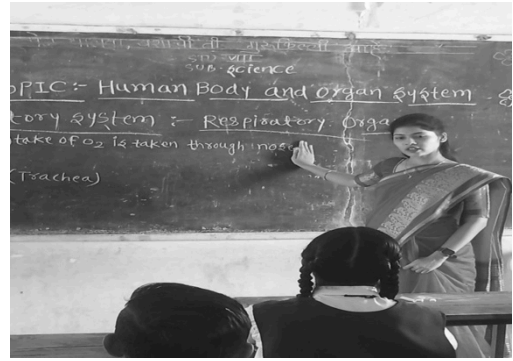 STD-VIII
SUB-Science
OPIC:- Human Body and organ system
tory system :- Respiratory Orga
ntake of O2 is taken through nose
(Trachea)